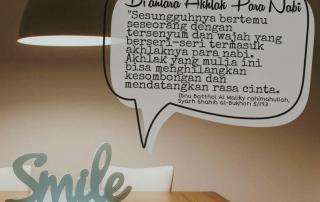 Di antara Akhlak Para Nabi
"Sesungguhnya bertemu
seseorang dengan
tersenyum dan wajah yang
berseri-seri termasuk
akhlaknya para nabi.
Akhlak yang mulia ini
bisa menghilangkan
kesombongan dan
mendatangkan rasa cinta.
Ibnu Batthol Al Maliky rahimahullah,
Syarh Shahih al-Bukhori 5/193
Smile